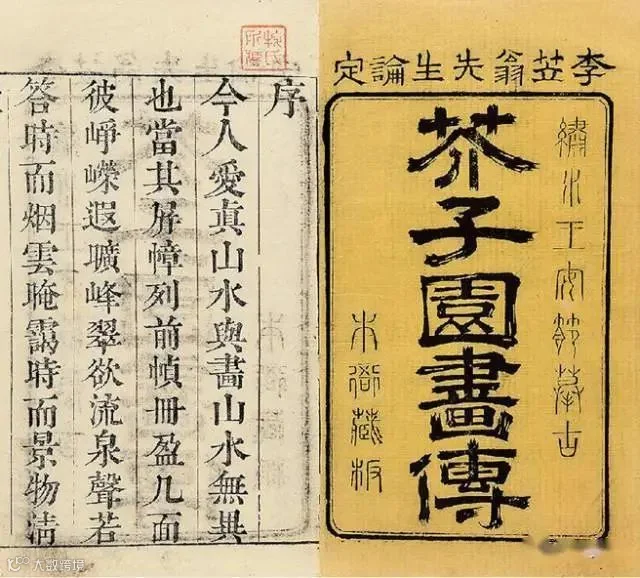 李笠翁先生論定
繡水王安節摹古
芥子園畫傳
本衙藏板
序
今人愛眞山水與畫山水無異
也當其屏幛列前幀冊盈几面
彼崢嶸遐曠峰翠欲流泉聲若
答時而烟雲晻靄時而景物清
大数跨境